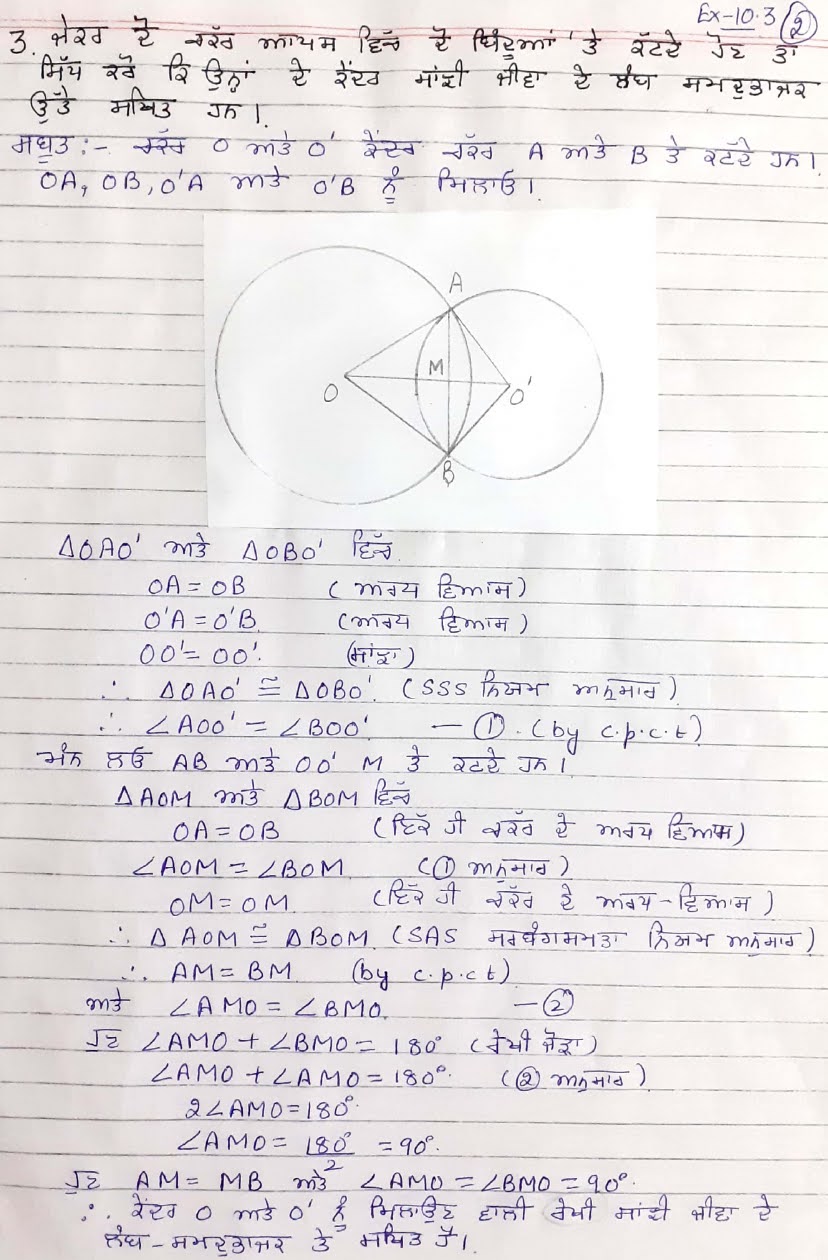 Ex-10.3 (2)
3. ਜੇਕਰ ਦੋ ਚੱਕਰ ਆਪਸ ਵਿੱਚ ਦੋ ਬਿੰਦੂਆਂ 'ਤੇ ਕੱਟਦੇ ਹੋਣ ਤਾਂ
ਸਿੱਧ ਕਰੋ ਕਿ ਉਨ੍ਹਾਂ ਦੇ ਕੇਂਦਰ ਸਾਂਝੀ ਜੀਵਾ ਦੇ ਲੰਬ ਸਮਦੁਭਾਜਕ
ਉੱਤੇ ਸਥਿਤ ਹਨ।
ਸਬੂਤ :- ਚੱਕਰ O ਅਤੇ O' ਕੇਂਦਰ ਚੱਕਰ A ਅਤੇ B ਤੇ ਕਟੱਦੇ ਹਨ।
OA, OB, O'A ਅਤੇ O'B ਨੂੰ ਮਿਲਾਓ।
A
M
O
O'
B
ΔOAO' ਅਤੇ ΔOBO' ਵਿੱਚ
OA = OB (ਅਰਧ ਵਿਆਸ)
O'A = O'B (ਅਰਧ ਵਿਆਸ)
OO' = OO'. (ਸਾਂਝਾ)
∴ ΔOAO' ≅ ΔOBO'. (SSS ਨਿਯਮ ਅਨੁਸਾਰ)
∴ ∠AOO' = ∠BOO'. — ①. (by c.p.c.t)
ਮੰਨ ਲਓ AB ਅਤੇ OO' M ਤੇ ਕਟਦੇ ਹਨ।
ΔAOM ਅਤੇ ΔBOM ਵਿੱਚ
OA = OB (ਇੱਕ ਹੀ ਚੱਕਰ ਦੇ ਅਰਧ ਵਿਆਸ)
∠AOM = ∠BOM. (① ਅਨੁਸਾਰ)
OM = OM. (ਇੱਕ ਹੀ ਚੱਕਰ ਦੇ ਅਰਧ-ਵਿਆਸ)
∴ ΔAOM ≅ ΔBOM. (SAS ਸਰਬੰਗਸਮਤਾ ਨਿਯਮ ਅਨੁਸਾਰ)
∴ AM = BM. (by c.p.c.t)
ਅਤੇ ∠AMO = ∠BMO. — ②
ਹੁਣ ∠AMO + ∠BMO = 180° (ਰੇਖੀ ਜੋੜਾ)
∠AMO + ∠AMO = 180°. (② ਅਨੁਸਾਰ)
2∠AMO = 180°.
∠AMO = 180°/2 = 90°.
ਹੁਣ AM = MB ਅਤੇ ∠AMO = ∠BMO = 90°.
∴ ਕੇਂਦਰ O ਅਤੇ O' ਨੂੰ ਮਿਲਾਉਣ ਵਾਲੀ ਰੇਖੀ ਸਾਂਝੀ ਜੀਵਾ ਦੇ
ਲੰਬ-ਸਮਦੁਭਾਜਕ ਤੇ ਸਥਿਤ ਹੈ।